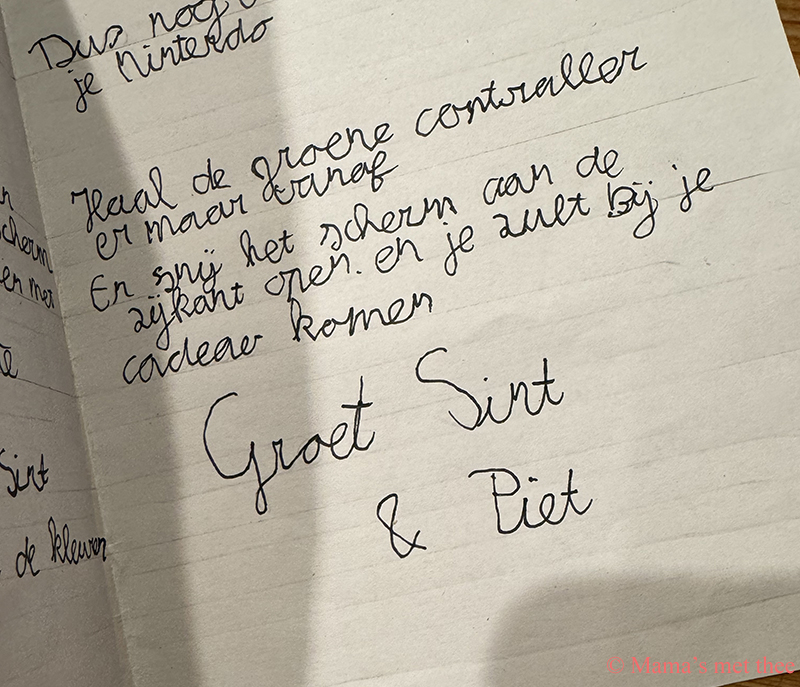 Dus nog
je Nintendo
Haal de groene controller
er maar vanaf
En snij het scherm aan de
zijkant open. en je zult bij je
cadeau komen
Groet Sint
& Piet
scherm
en met
Sint
de kleuren
© Mama's met thee